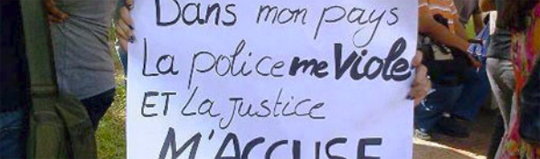 Dans mon pays
La police me Viole
ET La Justice
M'ACCUSE